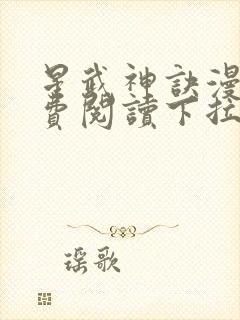 星武神訣漫
費閱讀下拉
瑶歌